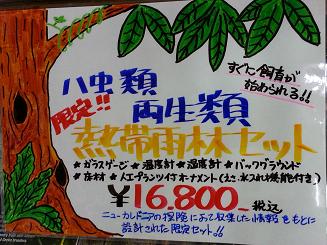 すぐに飼育が
始められる!!
ハ虫類
限定!!
両生類
熱帯雨林セット
★ガラスケージ ★温度計 ★湿度計 ★バックグラウンド
★床材 ★人工プランツ付オーナメント(エサ、水入れ兼能付き)
¥16.800 税込
ニューカレドニアの探険にあて収集した情報をもとに
設計された限定セット!!